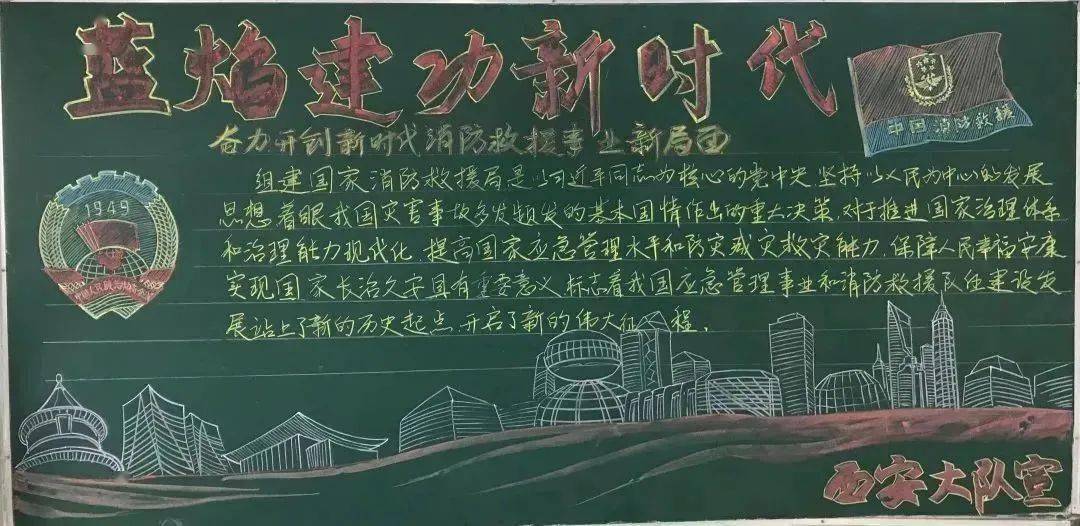 蓝焰建功新时代
奋力开创新时代消防救援事业新局面
中国消防救援
组建国家消防救援局是以习近平同志为核心的党中央坚持以人民为中心的发展
思想着眼我国灾害事故多发频发的基本国情作出的重大决策,对于推进国家治理体系
和治理能力现代化,提高国家应急管理水平和防灾减灾救灾能力,保障人民幸福安康
实现国家长治久安具有重要意义,标志着我国应急管理事业和消防救援队伍建设发
展站上了新的历史起点,开启了新的伟大征程。
1949
西安大队宣